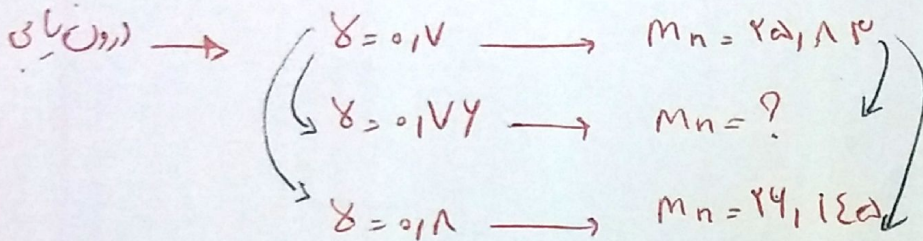 درون یابی → γ = ۰,۷ → mn = ۲۵,۸۳
γ = ۰,۷۶ → mn = ?
γ = ۰,۸ → mn = ۲۶,۱٤۵